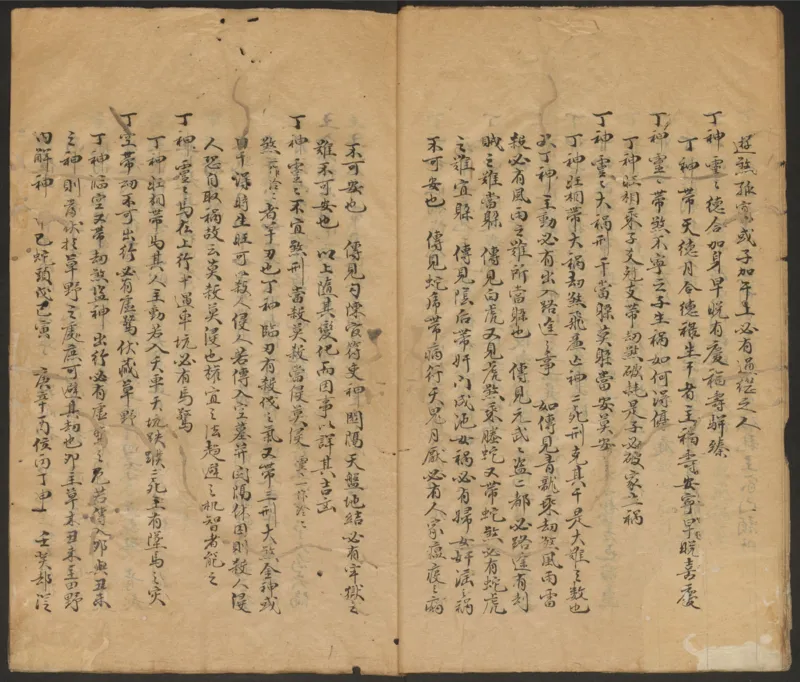 遊煞張寫或子加午主必有通從之人
丁神靈之德合加身早晚有慶福壽駢臻
丁神帶天德月合德祿生干者主福壽安寧早晚喜慶
丁神靈之帶煞不寧云子生禍如何淂停
丁神旺相乘子爻克支帶劫煞破耗是子必破家之禍
丁神靈之大禍刑干當躲莫躲當安莫安
丁神旺相帶大禍劫煞飛廉亡神二死刑克其干是大難之数也
以丁神主動必有出入路途之事 如傳見青龍乘劫煞風雨雷
殺必有風雨之難所當躲也 傳見元武之盜二都必路途有刦
賊之難當躲 傳見白虎又見虎煞乘螣蛇又帶蛇煞必有蛇虎
之難宜躲 傳見陰后帶奸门咸池女禍必有婦女奸滛之禍
不可安也 傳見蛇虎帶病符天鬼月厭必有人家瘟疫之病
不可安也 傳見勾陳官符吏神関隔天盤地結必有牢獄之
難不可安也 以上隨其變化而因事以詳其吉凶
丁神靈之不宜煞刑當殺莫殺當侵莫侵 靈一作於
煞一作於者羊刃也丁神臨刃有殺伐之氣又帶三刑大煞金神或
日干淂時生旺可以殺人侵人若傳入空墓并関隔休囚則殺人侵
人恐自取禍故云莫殺莫侵也權宜之法趨避之机智者能之
丁神靈之馬在上行十遇車坑必有馬驚
丁神旺相帶馬其人主動若入天車天坑跌蹼二死主有墜馬之灾
丁空帶劫不可出行必有虛驚伏藏草野
丁神臨空又帶劫煞盜神出行必有虛驚之危若傳入卯與丑未
之神則為伏於草野之處庶可避其劫也卯主草木丑未主田野
內解神 己蛇頭戊己寅 庚辛丙位四丁神 壬癸都從